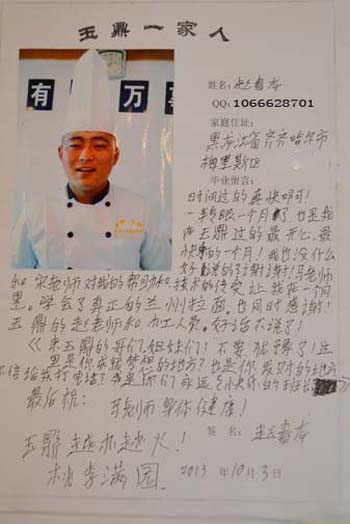 玉鼎一家人
有 万
姓名:赵春龙
QQ: 1066628701
家庭住址:
黑龙江省齐齐哈尔市
梅里斯区
毕业留言:
时间过的真快呀!
一转眼一个月了,也是我
在玉鼎过的最开心,最
快的一个月!我也没什么
好说的
和宋老师对我的帮助和技术的传受,让我在一个月
里。学会了真正的兰州拉面。也同时感谢!
五鼎的赵老师和办工人员。好话不说了!
来玉鼎的哥们,姐妹们!不要犹豫了!这
里是你成就梦想的地方?也是你发财的地方
不信给我打电话?我是你们永远
最后祝: 老师身体健康!
玉鼎越来越火! 签名:赵春龙
桃李满园. 2013 年10月3日